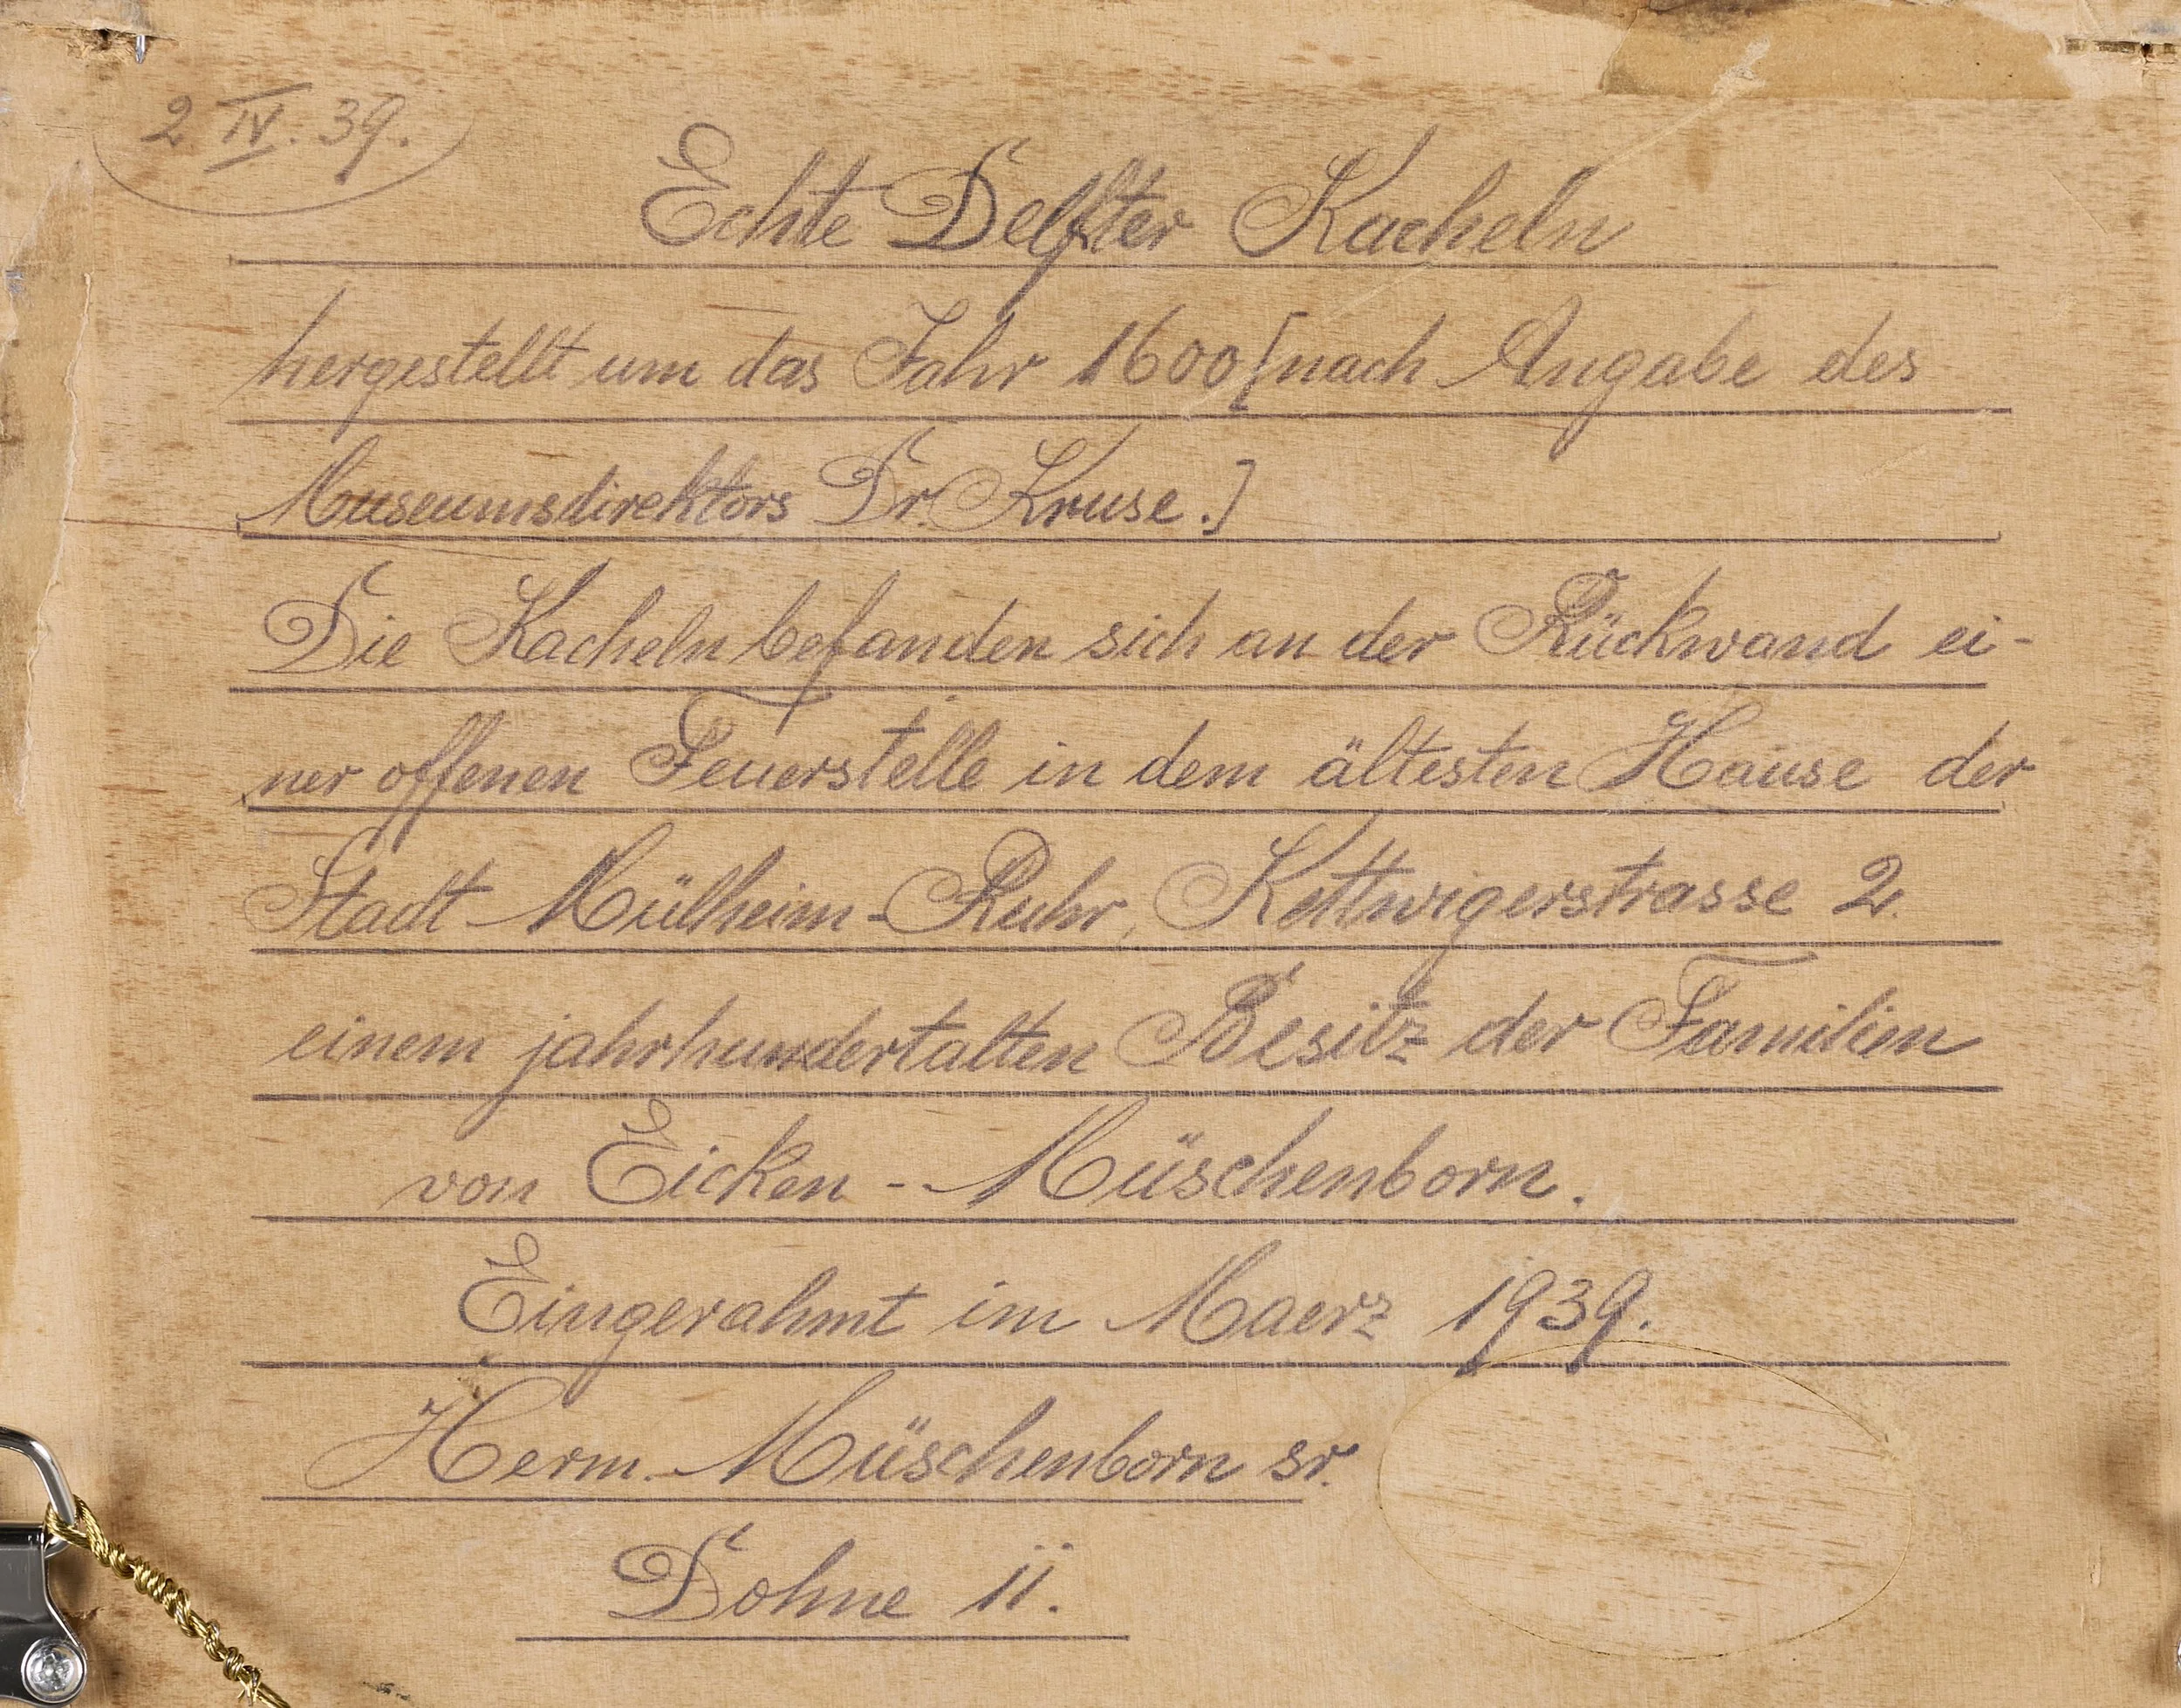 2 IV. 39.
Echte Delfter Kacheln
hergestellt um das Jahr 1600 [nach Angabe des
Museumsdirektors Dr. Kruse.]
Die Kacheln befanden sich an der Rückwand ei-
ner offenen Feuerstelle in dem ältesten Hause der
Stadt Mülheim-Ruhr, Kettwigerstrasse 2.
einem jahrhundertalten Besitz der Familien
von Eicken - Müschenborn.
Eingerahmt im Maerz 1939.
Herm. Müschenborn sr.
Dohne 11.